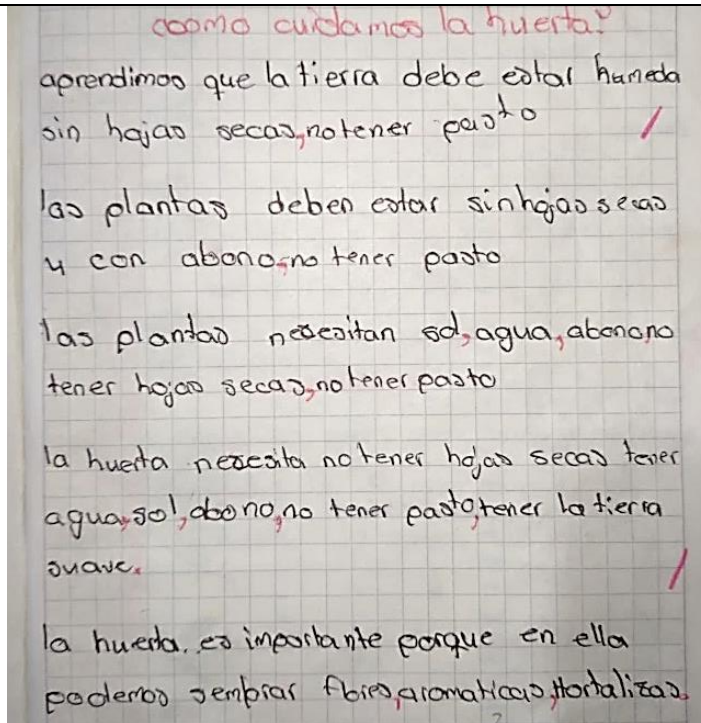 coomo cuidamos la huerta?
aprendimos que la tierra debe estar humeda
sin hojas secas, no tener pasto
las plantas deben estar sin hojas secas
y con abono, no tener pasto
las plantas necesitan sol, agua, abono, no
tener hojas secas, no tener pasto
la huerta necesita no tener hojas secas tener
agua, sol, abono, no tener pasto, tener la tierra
suave.
la huerta. es importante porque en ella
podemos sembrar flores, aromaticas, Hortalizas.